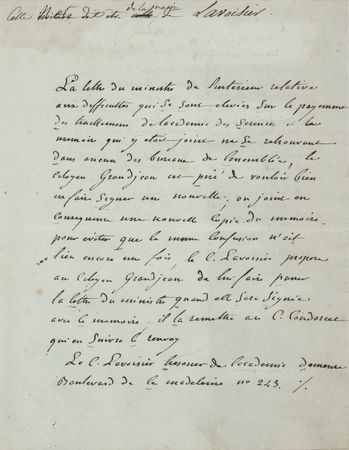 Cette doit etre de la main de Lavoisier.
La lettre du ministre de l'interieur relative
aux difficultes qui se sont elevées sur le payement
des traittemens de lacademie des Sciences et le
memoir qui y etoit joint ne se retrouvant
dans aucun des bureaux de l'assemblée, le
citoyen Grandjean est prié de vouloir bien
en faire signer une nouvelle, on joint en
consequence une nouvelle copie du memoire.
pour eviter que la meme confusion n'ait
lieu encore un fois, le C. Lavoisier propose
au Citoyen Grandjean de lui faire passer
la lettre du ministre quand elle sera signée
avec le memoire, il la remettra au C. Condorcet
qui en suivra le renvoy
Le C. Lavoisier tresorier de lacademie demeure
Boulevard de la madeleine no 243. %.